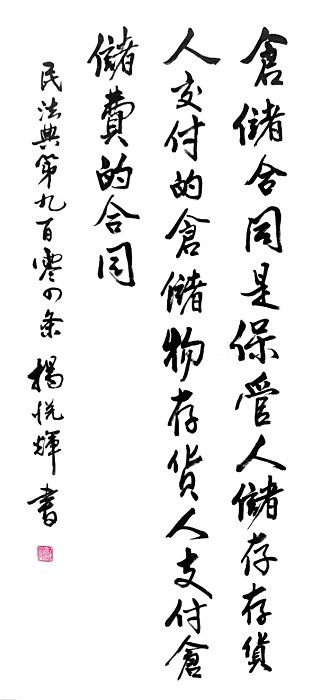 倉儲合同是保管人儲存存貨
人交付的倉儲物存貨人支付倉
儲費的合同
民法典第九百零四条 楊悅輝書